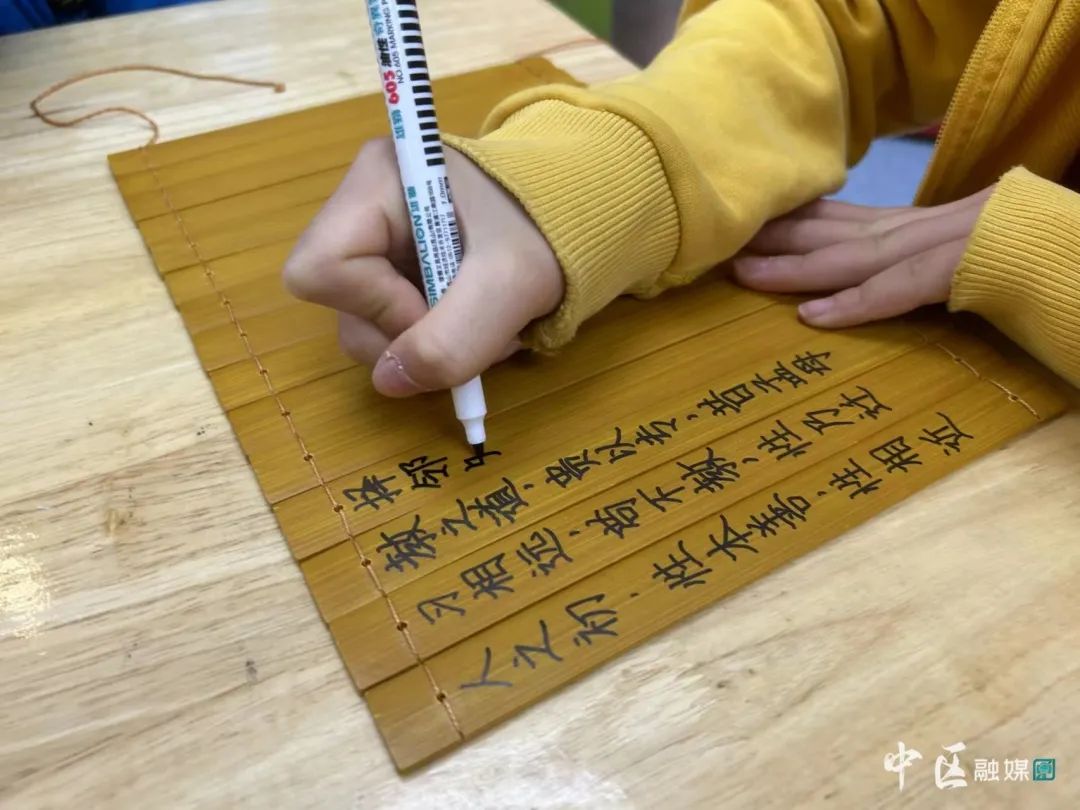 人之初，性本善，性相近
习相远，苟不教，性乃迁
教之道，贵以专，昔孟母
择邻
雄狮 605 油性
NO.605 MARKING
SIMBALION 雄狮
1.0mm
中区融媒